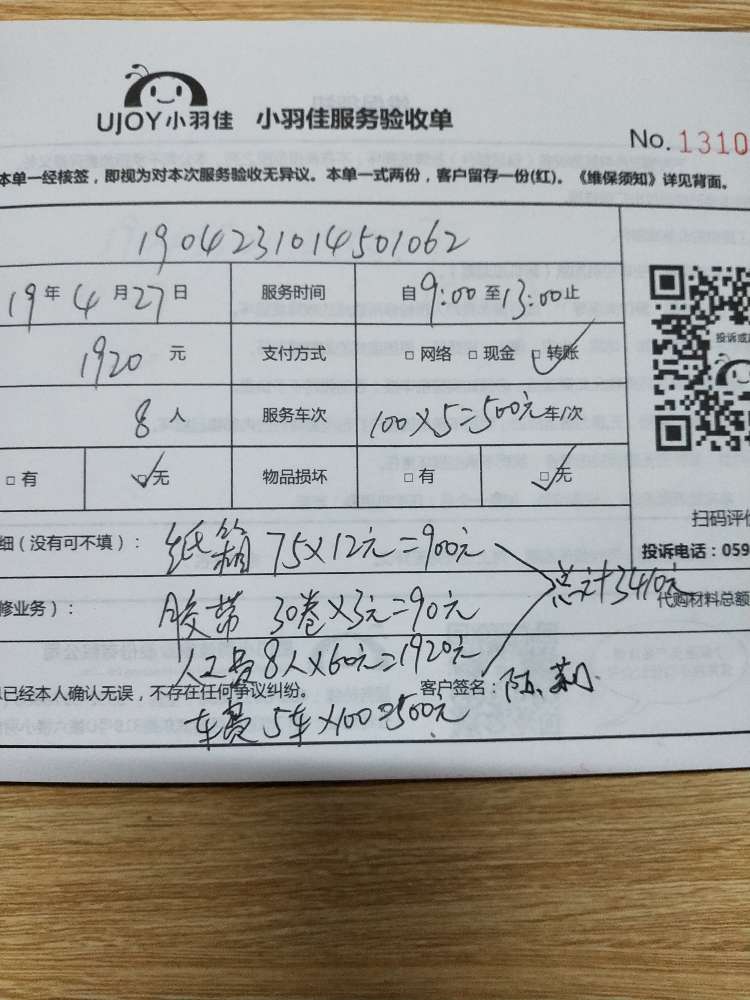 UJOY小羽佳 小羽佳服务验收单
No. 1310
本单一经核签，即视为对本次服务验收无异议。本单一式两份，客户留存一份(红)。《维保须知》详见背面。
1904231014501062
19年4月27日 服务时间 自9:00至13:00止
投诉或
1920元 支付方式 □网络 □现金 □转账
8人 服务车次 100×5=500元车/次
□有 □无 物品损坏 □有 □无
扫码评价
细(没有可不填)： 纸箱 75×12元=900元
投诉电话：059
总计3410元
修业务)： 胶带 30卷×3元=90元
代购材料总额
人工费8人×60元=1920元
已经本人确认无误，不存在任何争议纠纷。 客户签名：陈
车费5车×100=500元